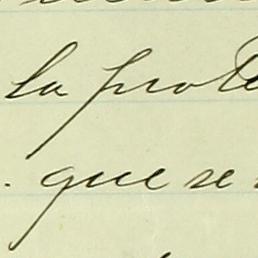 la prote
. que se